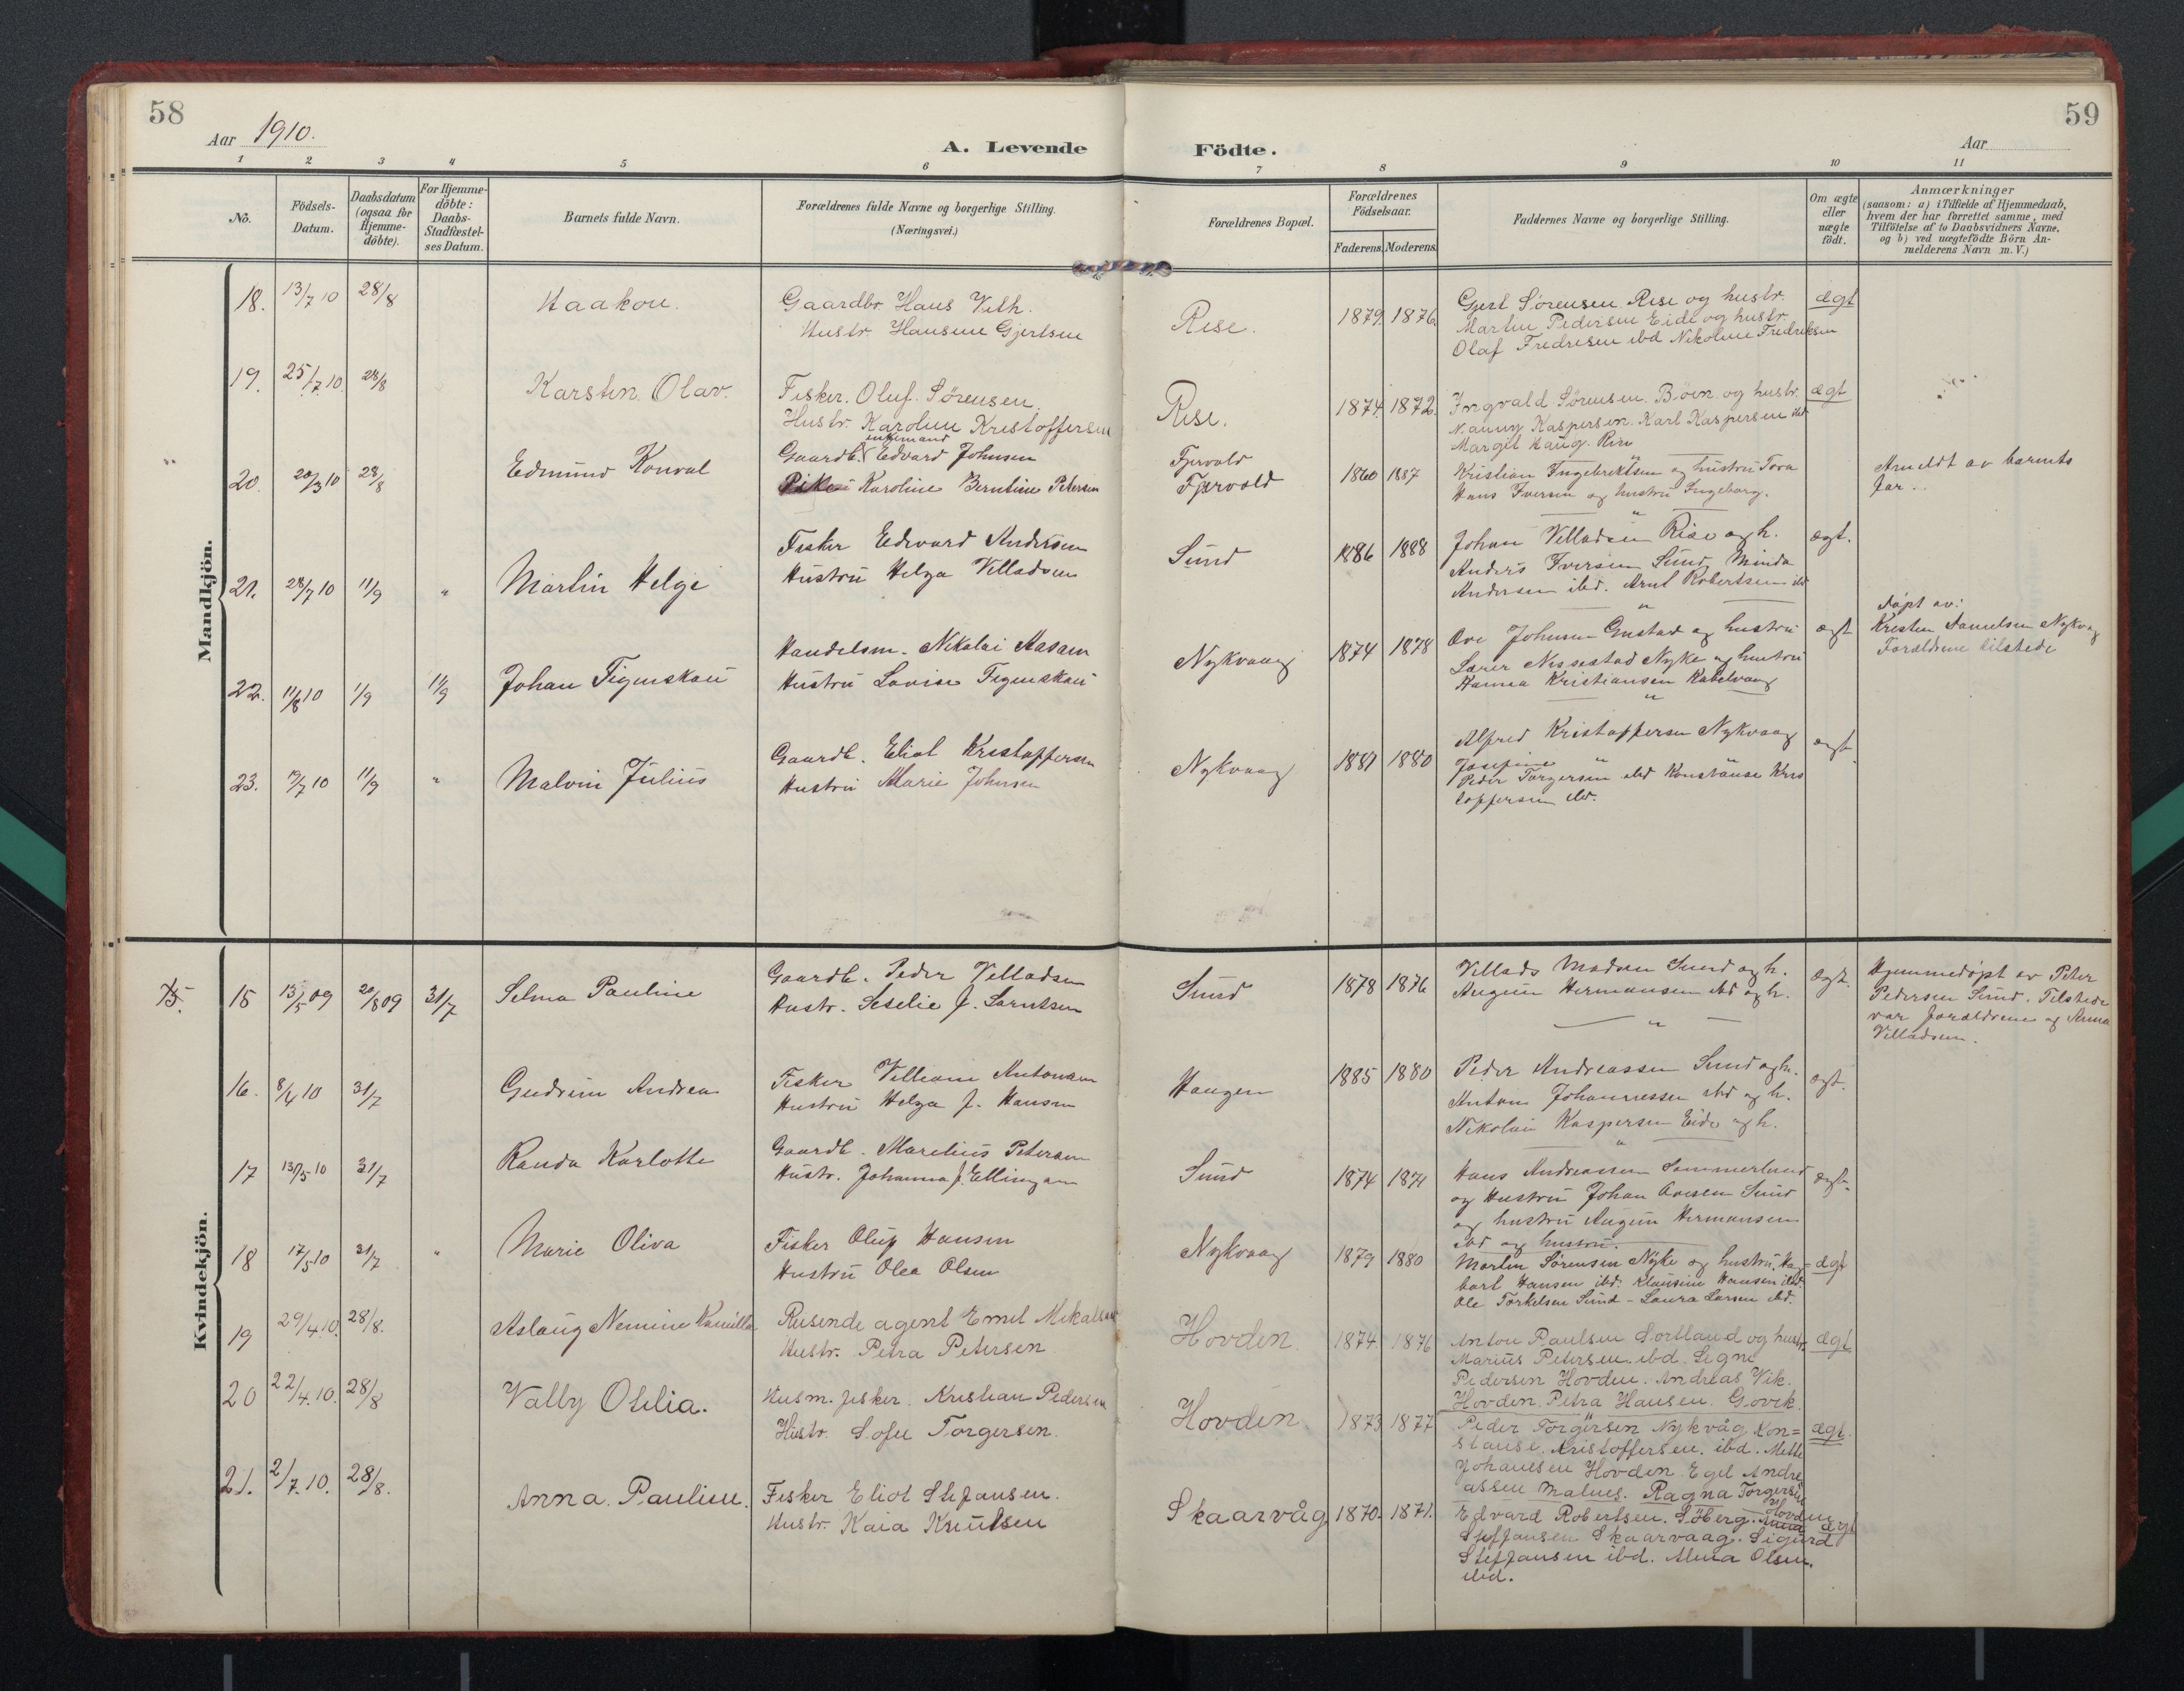 58
Aar 1910.
A. Levende
1 2 3 4 5 6
No.
Födsels-
Datum.
Daabsdatum
(ogsaa for
Hjemme-
döbte).
For Hjemme-
döbte:
Daabs-
Stadfæstel-
ses Datum.
Barnets fulde Navn.
Forældrenes fulde Navne og borgerlige Stilling.
(Næringsvei.)
Mandkjön.
18. 13/7 10 28/8 Haakon. Gaardbr. Hans Vilh.
Hustr. Hansine Gjertsen
19. 25/7 10 28/8 Karsten Olav. Fisker. Oluf. Sørensen.
Hustr. Karoline Kristoffersen
enkemand
20. 20/3 10 28/8 Edmund Konval Gaardb. Edvard Johnsen
Pike Karoline Berntine Petersen
21. 28/7 10 11/9 " Martin Helge Fisker Edvard Andersen
Hustru Helga Villadsen
22. 11/8 10 1/9 11/9 Johan Tigenskau Handelsm. Nikolai Aasam
Hustru Lovise Tigenskau
23. 19/7 10 11/9 " Malvin Julius Gaardb. Eliot Kristoffersen
Hustru Marie Johnsen
Kvindekjön.
15 13/5 09 20/8 09 31/7 Selma Pauline Gaardb. Peder Villadsen
Hustr. Seselie J. Larntsen
16. 8/4 10 31/7 Gudrun Andrea Fisker Villiam Antonsen
Hustru Helga J. Hansen
17 13/5 10 31/7 Randa Karlotte Gaardb. Marelius Petersen
Hustr. Johanna J. Ellingsen
18 17/5 10 31/7 " Marie Oliva Fisker Oluf Hansen
Hustru Olea Olsen
19 29/4.10. 28/8. Aslaug Nemine Kamilla Reisende agent Emil Mikalsen
Hustr. Petra Petersen
20 22/4.10. 28/8 Valby Otilia. Husm. fisker. Kristian Pedersen
Hustr. Sofie Torgersen.
21. 2/7.10. 28/8. Anna. Pauline. Fisker Eliot Stefansen.
Hustr. Kaia Knutsen
59
Aar
Födte.
7 8 9 10 11
Forældrenes Bopæl.
Forældrenes
Födselsaar.
Faderens. Moderens.
Faddernes Navne og borgerlige Stilling.
Om ægte
eller
uægte
födt.
Anmærkninger
(saasom: a) i Tilfælde af Hjemmedaab,
hvem der har forrettet samme, med
Tilföielse af to Daabsvidners Navne,
og b) ved uægtefödte Börn An-
melderens Navn m. V.)
Rise. 1879. 1876. Gjert Sörensen Rise og hustr. ægt
Martin Pedersen Eide og hustr.
Olaf Fredresen ibd Nikoline Fredriksen
Rise. 1874. 1872. Ingvald Sörensen. Böen og hustr. ægt
Nanny Kaspersen. Karl Kaspersen ibd
Margit Haug. Rise
Fjervold
Fjervold 1860 1887 Kristian Ingebrektsen og hustru Tora
Hans Iversen og hustru Ingeborg.
Anmeldt av barnets
far.
Sund 1886 1888 Johan Villadsen Rise og h. ægt.
Anders Iversen Sund Minda
Andersen ibd. Arnt Robertsen ibd
Nykvaag 1874 1878 Ove Johnsen Gustad og hustru ægt
Lærer Nessestad Nyke og hustru
Hanna Kristiansen Kabelvaag
Døpt av:
Kristen Danielsen Nykvag
Forældrene tilstede
Nykvaag 1881 1880 Alfred Kristoffersen Nykvaag ægt
Josefine "
Peder Torgersen ibd Konstanse Kris
toffersen ibd.
Sund 1878 1876 Villads Madsen Sund og h. ægt.
August Hermansen ibd og h.
Hjemmedøpt av Peter
Pedersen Sund. Tilstede
var forældrene og Anna
Villadsen.
Haugen 1885 1880 Peder Andreassen Sund og h. ægt.
Anton Johannessen ibd og h.
Nikolai Kaspersen Eide og h.
Sund 1874 1871 Hans Andreassen Sommerlund ægt.
og Hustru Johan Ovesen Sund
og hustru August Hermansen
ibd og hustru.
Nykvaag 1879 1880 Martin Sørensen Nyke og hustru. Hag= ægt
bart Hansen ibd. Klausine Hansen ibd
Ole Torkelsen Sund - Laura Larsen ibd.
Hovden. 1874. 1876 Anton Paulsen Sortland og hustr. ægt
Marius Petersen ibd. Signe
Pedersen Hovden. Andreas Vik.
Hovden. Petra Hansen. Govik.
Hovden 1873 1877 Peder Torgersen Nykvåg Kon= ægt.
stanse. Kristoffersen. ibd. Mette
Johansen Hovden. Egil Andre
assen Malnes. Ragna Torgersen
Hovden
Skaarvåg 1870. 1871. Edvard Robertsen. Söberg. Anna ægt
Steffansen Skaarvaag. Sigurd
Steffansen ibd. Alma Olsen.
ibd.